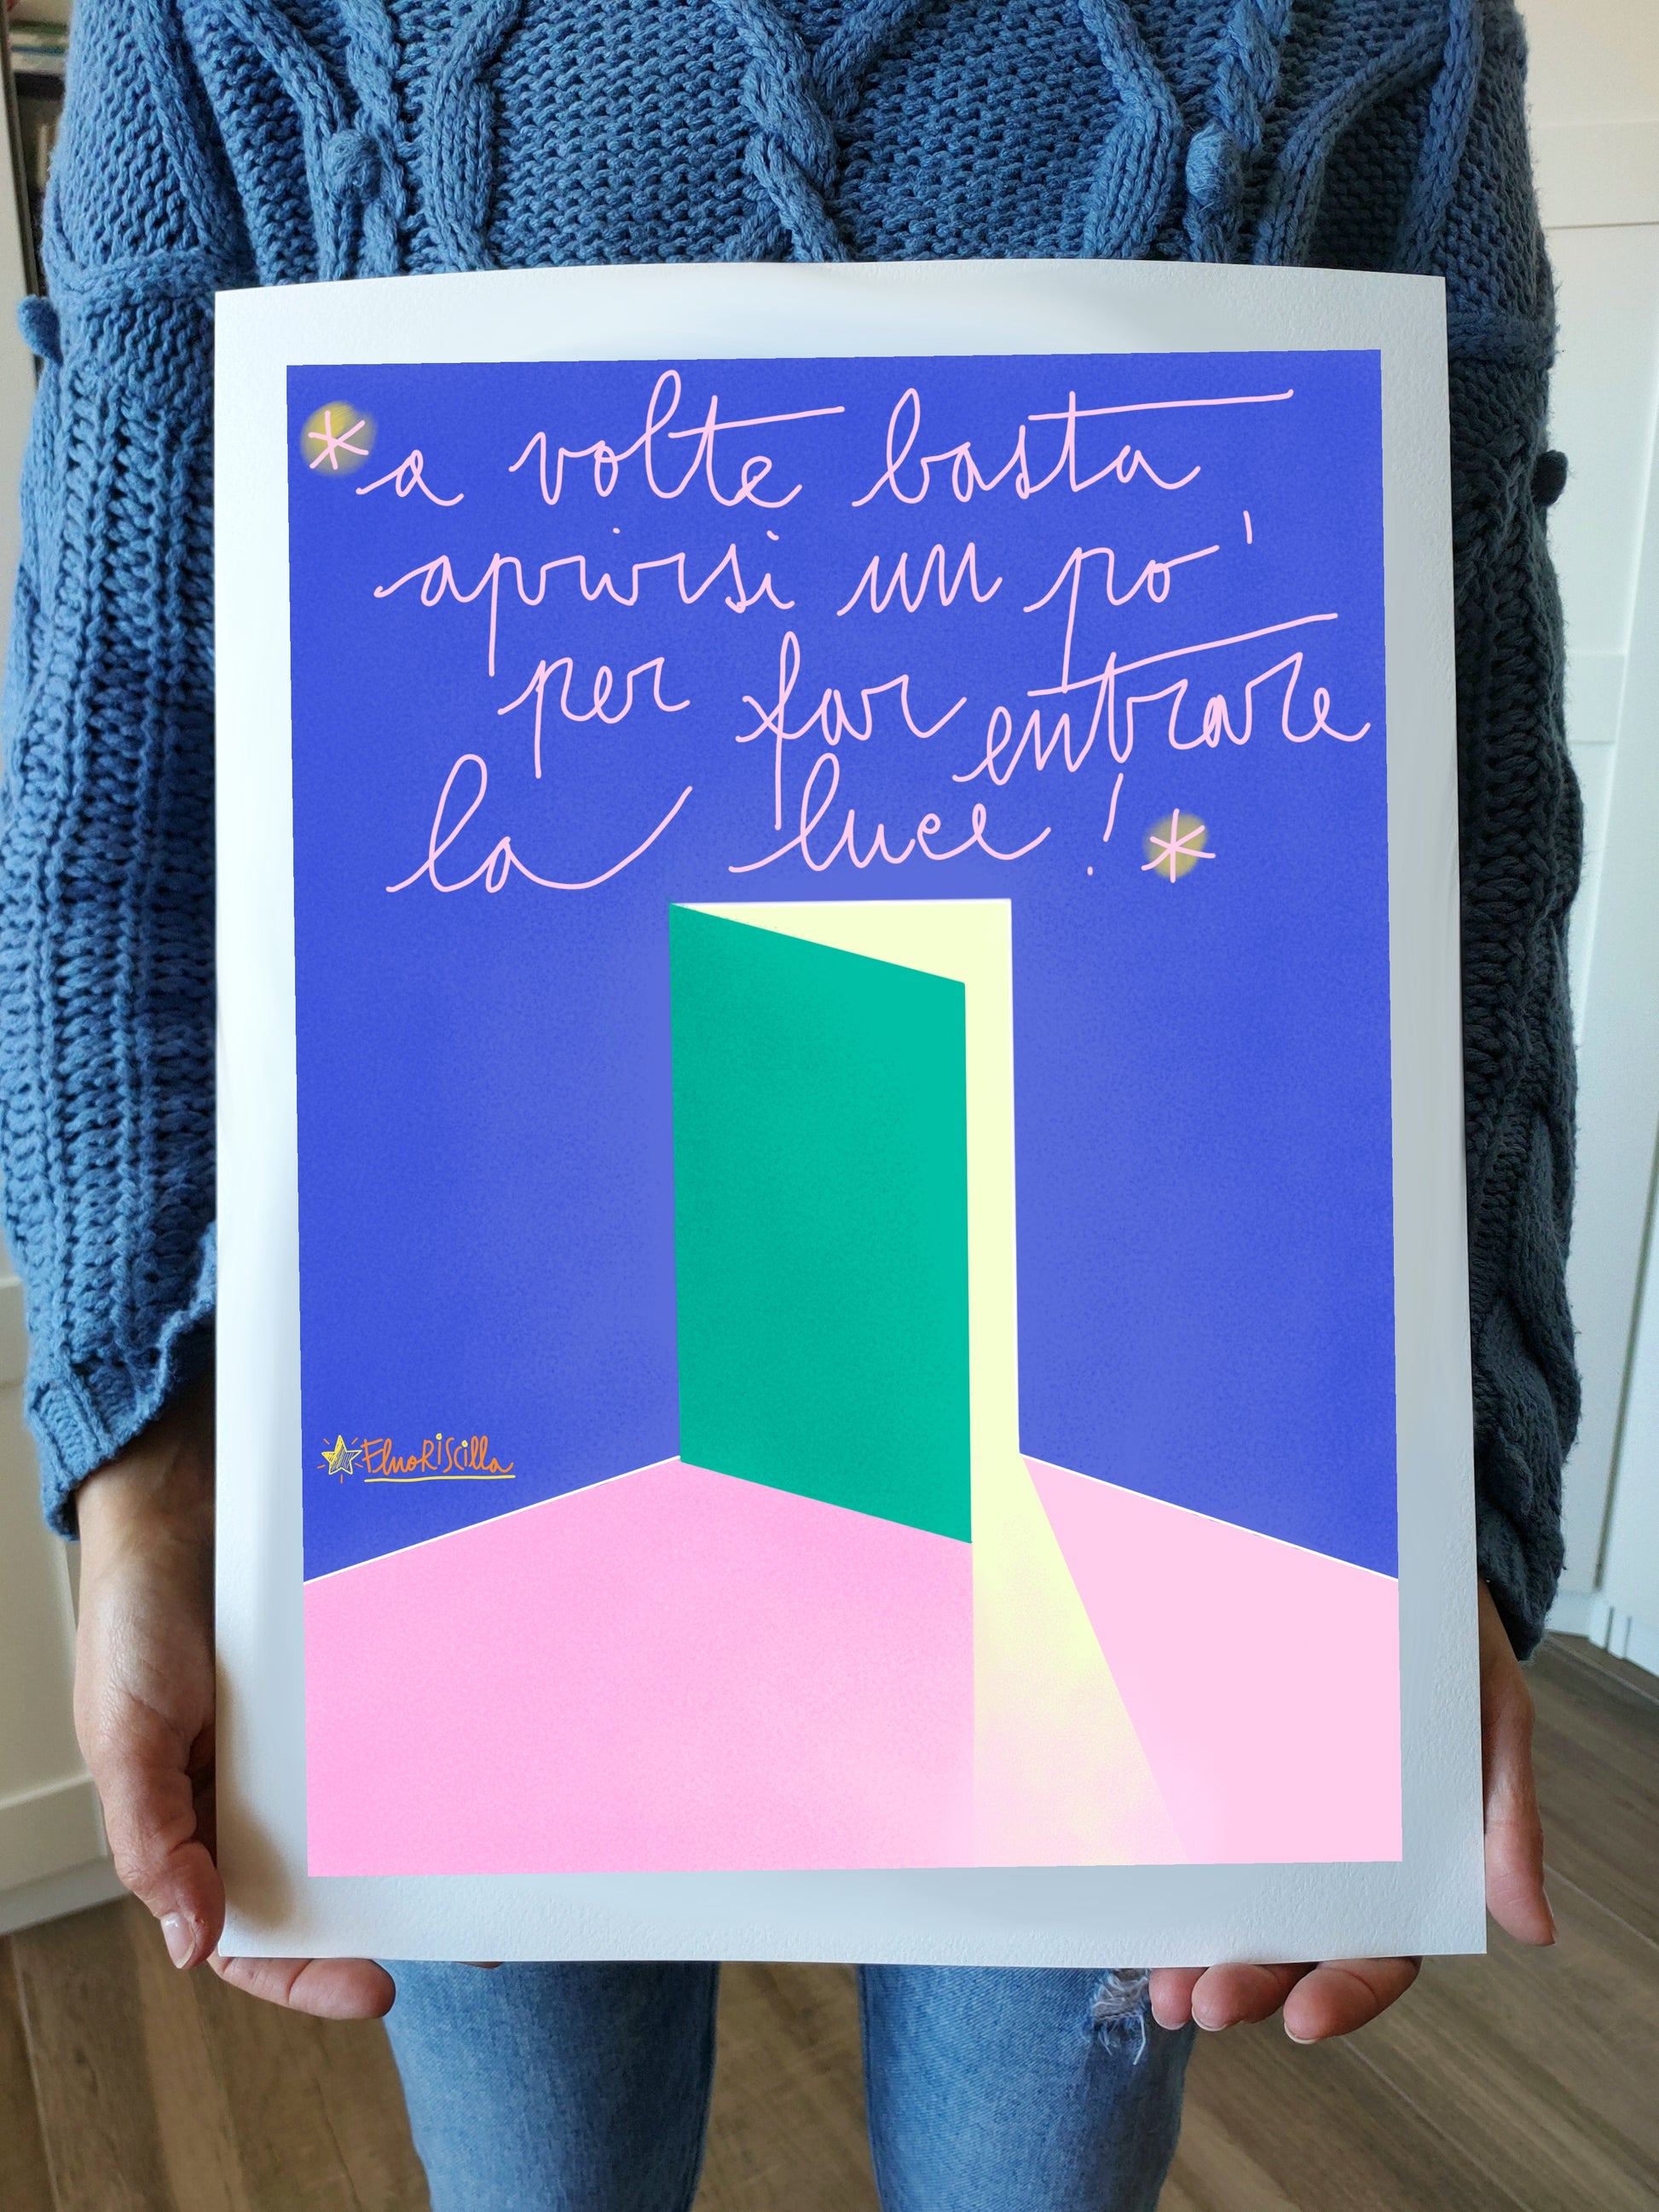 *a volte basta
aprirsi un po'
per far entrare
la luce! *
FluoRiScilla